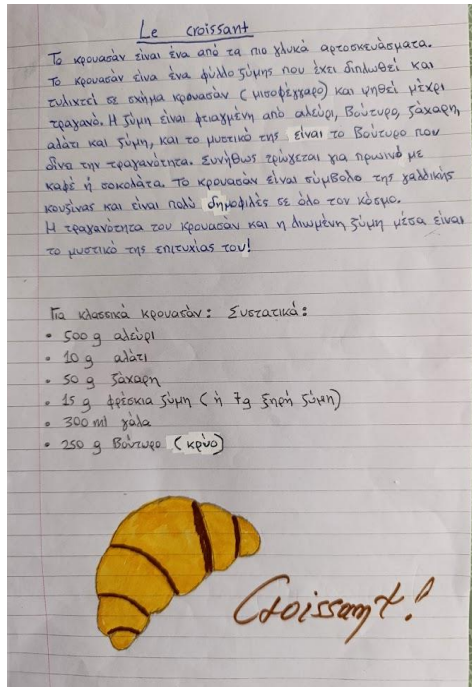 Le croissant
Το κρουασάν είναι ένα από τα πιο γλυκά αρτοσκευάσματα.
Το κρουασάν είνα ένα φύλλο ζύμης που έχει διπλωθεί και
τυλιχτεί σε σχήμα κρουασάν (μισοφέγγαρο) και ψηθεί μέχρι
τραγανό. Η ζύμη είναι φτιαγμένη από αλεύρι, βούτυρο, ζάχαρη,
αλάτι και ζύμη, και το μυστικό της είναι το βούτυρο που
δίνα την τραγανότητα. Συνήθως τρώγεται για πρωινό με
καφέ ή σοκολάτα. Το κρουασάν είναι σύμβολο της γαλλικής
κουζίνας και είναι πολύ δημοφιλές σε όλο τον κόσμο.
Η τραγανότητα του κρουασάν και η λιωμένη ζύμη μέσα είναι
το μυστικό της επιτυχίας του!
Για κλασσικά κρουασάν: Συστατικά:
• 500 g αλεύρι
• 10 g αλάτι
• 50 g ζάχαρη
• 15 g φρέσκια ζύμη (ή 7g ξηρή ζύμη)
• 300 ml γάλα
• 250 g βούτυρο (κρύο)
Croissant!